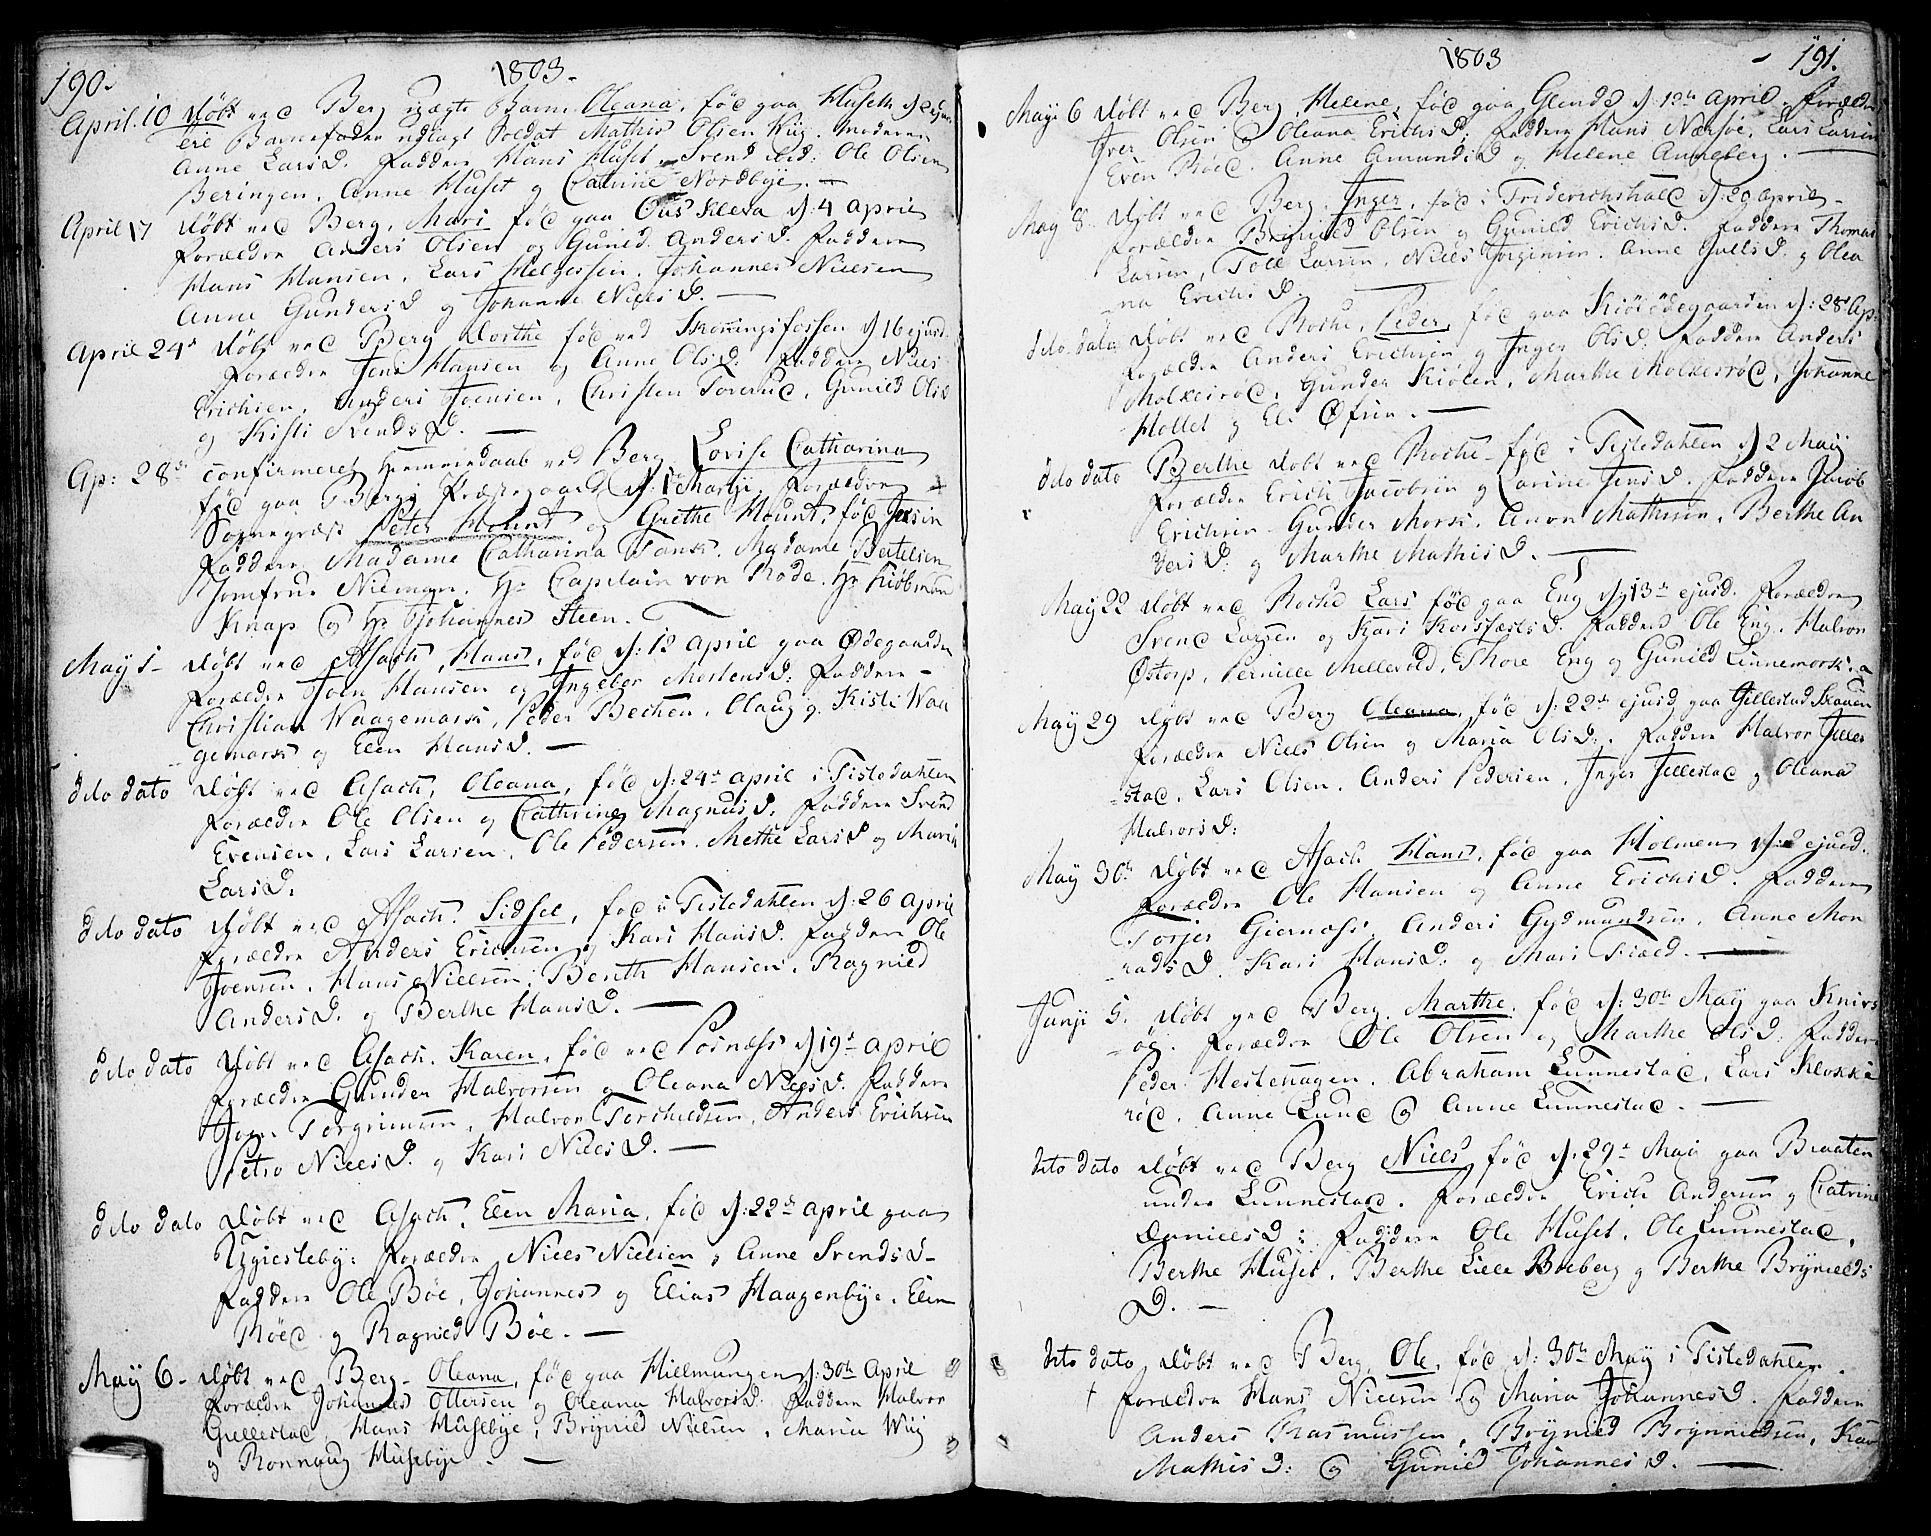 190.
1803.
April. 10 Døbt ved Berg uægte Barn Oleana, fød paa Huseth d: 2 ejus
ere Barnefader udlagt Soldat Mathis Olsen Kiig. moderen
Anne LarsD. Faddere Hans Huset, Svend ibid: Ole Olsen
Beringen, Anne Huset og Catrine Nordbÿe. —
April 17 Døbt ved Berg, Mari fød paa Ous Kleva d: 4 April
Forældre Anders Olsen og Gunild AndersD. Faddere
Hans Hansen, Lars Helgessen, Johannes Nielsen
Anne GundersD og Johanne NielsD. —
April 24de Døbt ved Berg Dorthe fød ved Skonningsfossen d 16 ejusd.
Forældre Jens Hansen og Anne OlsD: Faddere Niels
Erichsen, Anders Joensen, Christen Torerud, Gunild OlsD
og Kisti SvendsD. —
Ap: 28de confirmeret Hiemmedaab ved Berg Lovise Catharina
fød paa Bergs Præstegaard d: 1te Martji, Forældre
Sognepræst Peter Hount og Grethe Hount, fød Jersin
Faddere Madame Catharina Tank, Madame Bertelsen
Jomfrue Nieman, Hr Capitain von Rode, Hr Kiøbmand
Knap og Hr Johannes Steen. —
Maÿ 1- Døbt ved Asach, Hans, fød d: 12 April paa Ødegaarden
Forældre Joen Hansen og Ingebor MortensD: Faddere -
Christian Waagemark, Peder Bechen, Olaug og Kisti Waa
gemark og Elen HansD. —
dito dato Døbt ved Asach, Oleana, fød d: 24de April i Tistedahlen
Forældre Ole Olsen og Cathrine MagnusD. Faddere Svend
Evensen, Lars Larsen, Ole Pedersen, Methe LarsD og Maria
LarsD.
dito dato Døbt ved Asach. Sidsel, fød i Tistedahlen d: 26 April
Forældre Anders Erichsen og Kari HansD. Faddere Ole
Joensen, Hans Nielsen, Benth Hansen, Ragnild
AndersD. og Berthe HansD. —
dito dato Døbt ved Asach. Karen, fød ved Posnæss d 19de April
Forældre Gunder Halvorsen og Oleana NielsD. Faddere
Joen Torgrimsen, Halvor Torchildsen, Anders Erichsen
Petro NielsD. og Kari NielsD. —
dito dato Døbt ved Asach, Elen Maria, fød d: 22de April paa
Ugiestebÿ: Forældre Niels Nielsen og Anne SvendsD-
Faddere Ole Bøe, Johannes og Elias Haagenbÿe, Elen
Røed og Ragnild Bøe. —
Maÿ 6- Døbt ved Berg- Oleana, fød paa Hillmungen d: 30te April
Forældre Johannes Ottersen og Oleana HalvorsD. Faddere Halvor
Gillestad, Hans Husebÿe, Brÿnild Nielsen, Maria Wiig
og Ronnaug Husebÿe. —
1803
191.
Maÿ 6 Døbt ved Berg, Helene, fød paa Glende d: 12te April. Forældre
Iver Olsen og Oleana ErichsD. Faddere Hans Narsøe, Lars Larsen
Even Røed. Anne AmundsD og Helene Anneberg. —
Maÿ 8. Døbt ved Berg, Inger, fød i Friderichshald d: 20 April-
Forældre Brÿnild Olsen og Gunild ErichsD. Faddere Thomas
Larsen, Toll Larsen, Niels Jørginsen. Anne GullsD. og Olea
na ErichsD. —
dito dato Døbt ved Rokke, Peder, fød paa Kiøsødegaarden d: 28de Ap:
Forældre Anders Erichsen og Inger OlsD. Faddere Anders
Molkesrød, Gunder Kiølen, Marthe Molkesrød, Johanne
Hollet og Eli Øfsin. —
dito dato Berthe Døbt ved Rokke- fød i Tistedahlen d 2 Maÿ
Forældre Erich Jacobsen og Karine JensD. Faddere Jacob
Erichsen Gunder Mork, Aron Mathisen, Berthe An
dersD: og Marthe MathisD. —
Maÿ 22 Døbt ved Rokke Lars fød paa Eng d 13de ejusd. Forældre
Svend Larsen og Kari KorsfæstsD. Faddere Ole Eng, Halvor
Østorp, Pernille Mellerød, Thore Eng og Gunild Linnemork.
Maÿ 29 Døbt ved Berg Oleana, fød d: 22de ejusd paa Gillestad Skaaren
Forældre Niels Olsen og Maria OlsD:. Faddere Halvor Jilles
stad, Lars Olsen, Anders Pedersen, Inger Jellestad og Oleana
HalvorsD:
Maÿ 30te Døbt ved Asach Hans, fød paa Holmen d: 2 ejusd.
Forældre Ole Hansen og Anne ErichsD. Faddere
Torjer Giernæss, Anders Gudmundsen, Anne Mon
radsD. Kari HansD: og Mari Field. —
Junji 5. Døbt ved Berg. Marthe, fød d: 30te Maÿ paa Knivs
øe. Forældre Ole Olsen og Marthe OlsD: Faddere
Peder Hestehagen, Abraham Lunnestad, Lars Klokke
rød, Anne Lund og Anne Lunnestad. —
dito dato Døbt ved Berg Niels fød d: 29de Maÿ paa Braaten
under Lunnestad. Forældre Erich Andersen og Catrine
DanielsD: Faddere Ole Huset, Ole Lunnestad,
Berthe Huset, Berthe Lille Boeberg og Berthe Brÿnilds
D. —
dito dato Døbt ved Berg, Ole, fød d: 30te Maÿ i Tistedahlen
† Forældre Hans Nielsen og Maria JohannesD. Faddere
Anders Rasmussen, Brÿnild Brÿnnildsen, Kari
MathisD: og Gunild JohannesD. —